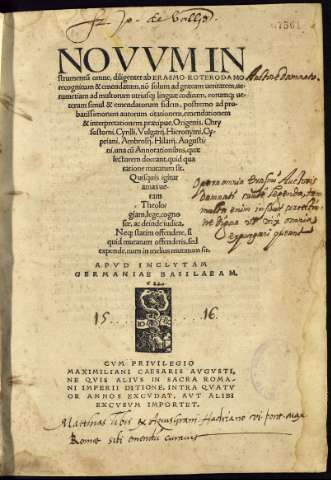 Fr. Jo. de Valle
17561
NOVVM IN
strumentū omne, diligenter ab ERASMO ROTERODAMO
recognitum & emendatum, nō solum ad græcam ueritatem, ue-
rumetiam ad multorum utriusq; linguæ codicum, eorumq; ue-
terum simul & emendatorum fidem, postremo ad pro-
batissimorum autorum citationem, emendationem
& interpretationem, præcipue, Origenis, Chry
sostomi, Cyrilli, Vulgarij, Hieronymi, Cy-
priani, Ambrosij, Hilarij, Augusti
ni, una cū Annotationibus, quæ
lectorem doceant, quid qua
ratione mutatum sit.
Quisquis igitur
amas ue-
ram
Theolo
giam, lege, cogno
sce, ac deinde iudica.
Neq; statim offendere, si
quid mutatum offenderis, sed
expende, num in melius mutatum sit.
APVD INCLYTAM
GERMANIAE BASILAEAM.
15 16.
CVM PRIVILEGIO
MAXIMILIANI CAESARIS AVGVSTI,
NE QVIS ALIVS IN SACRA ROMA-
NI IMPERII DITIONE, INTRA QVATV
OR ANNOS EXCVDAT, AVT ALIBI
EXCVSVM IMPORTET.
Auctore Damnato
Opera omnia Erasmi Auctoris
Damnati caute legenda, tam
multa enim insunt
expurgari
Romæ sibi emendū curavit